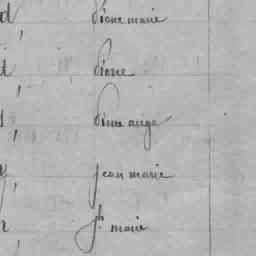 d, Pierre marie
d, Pierre
d, Pierre ange
y, jean marie
r, jh marie